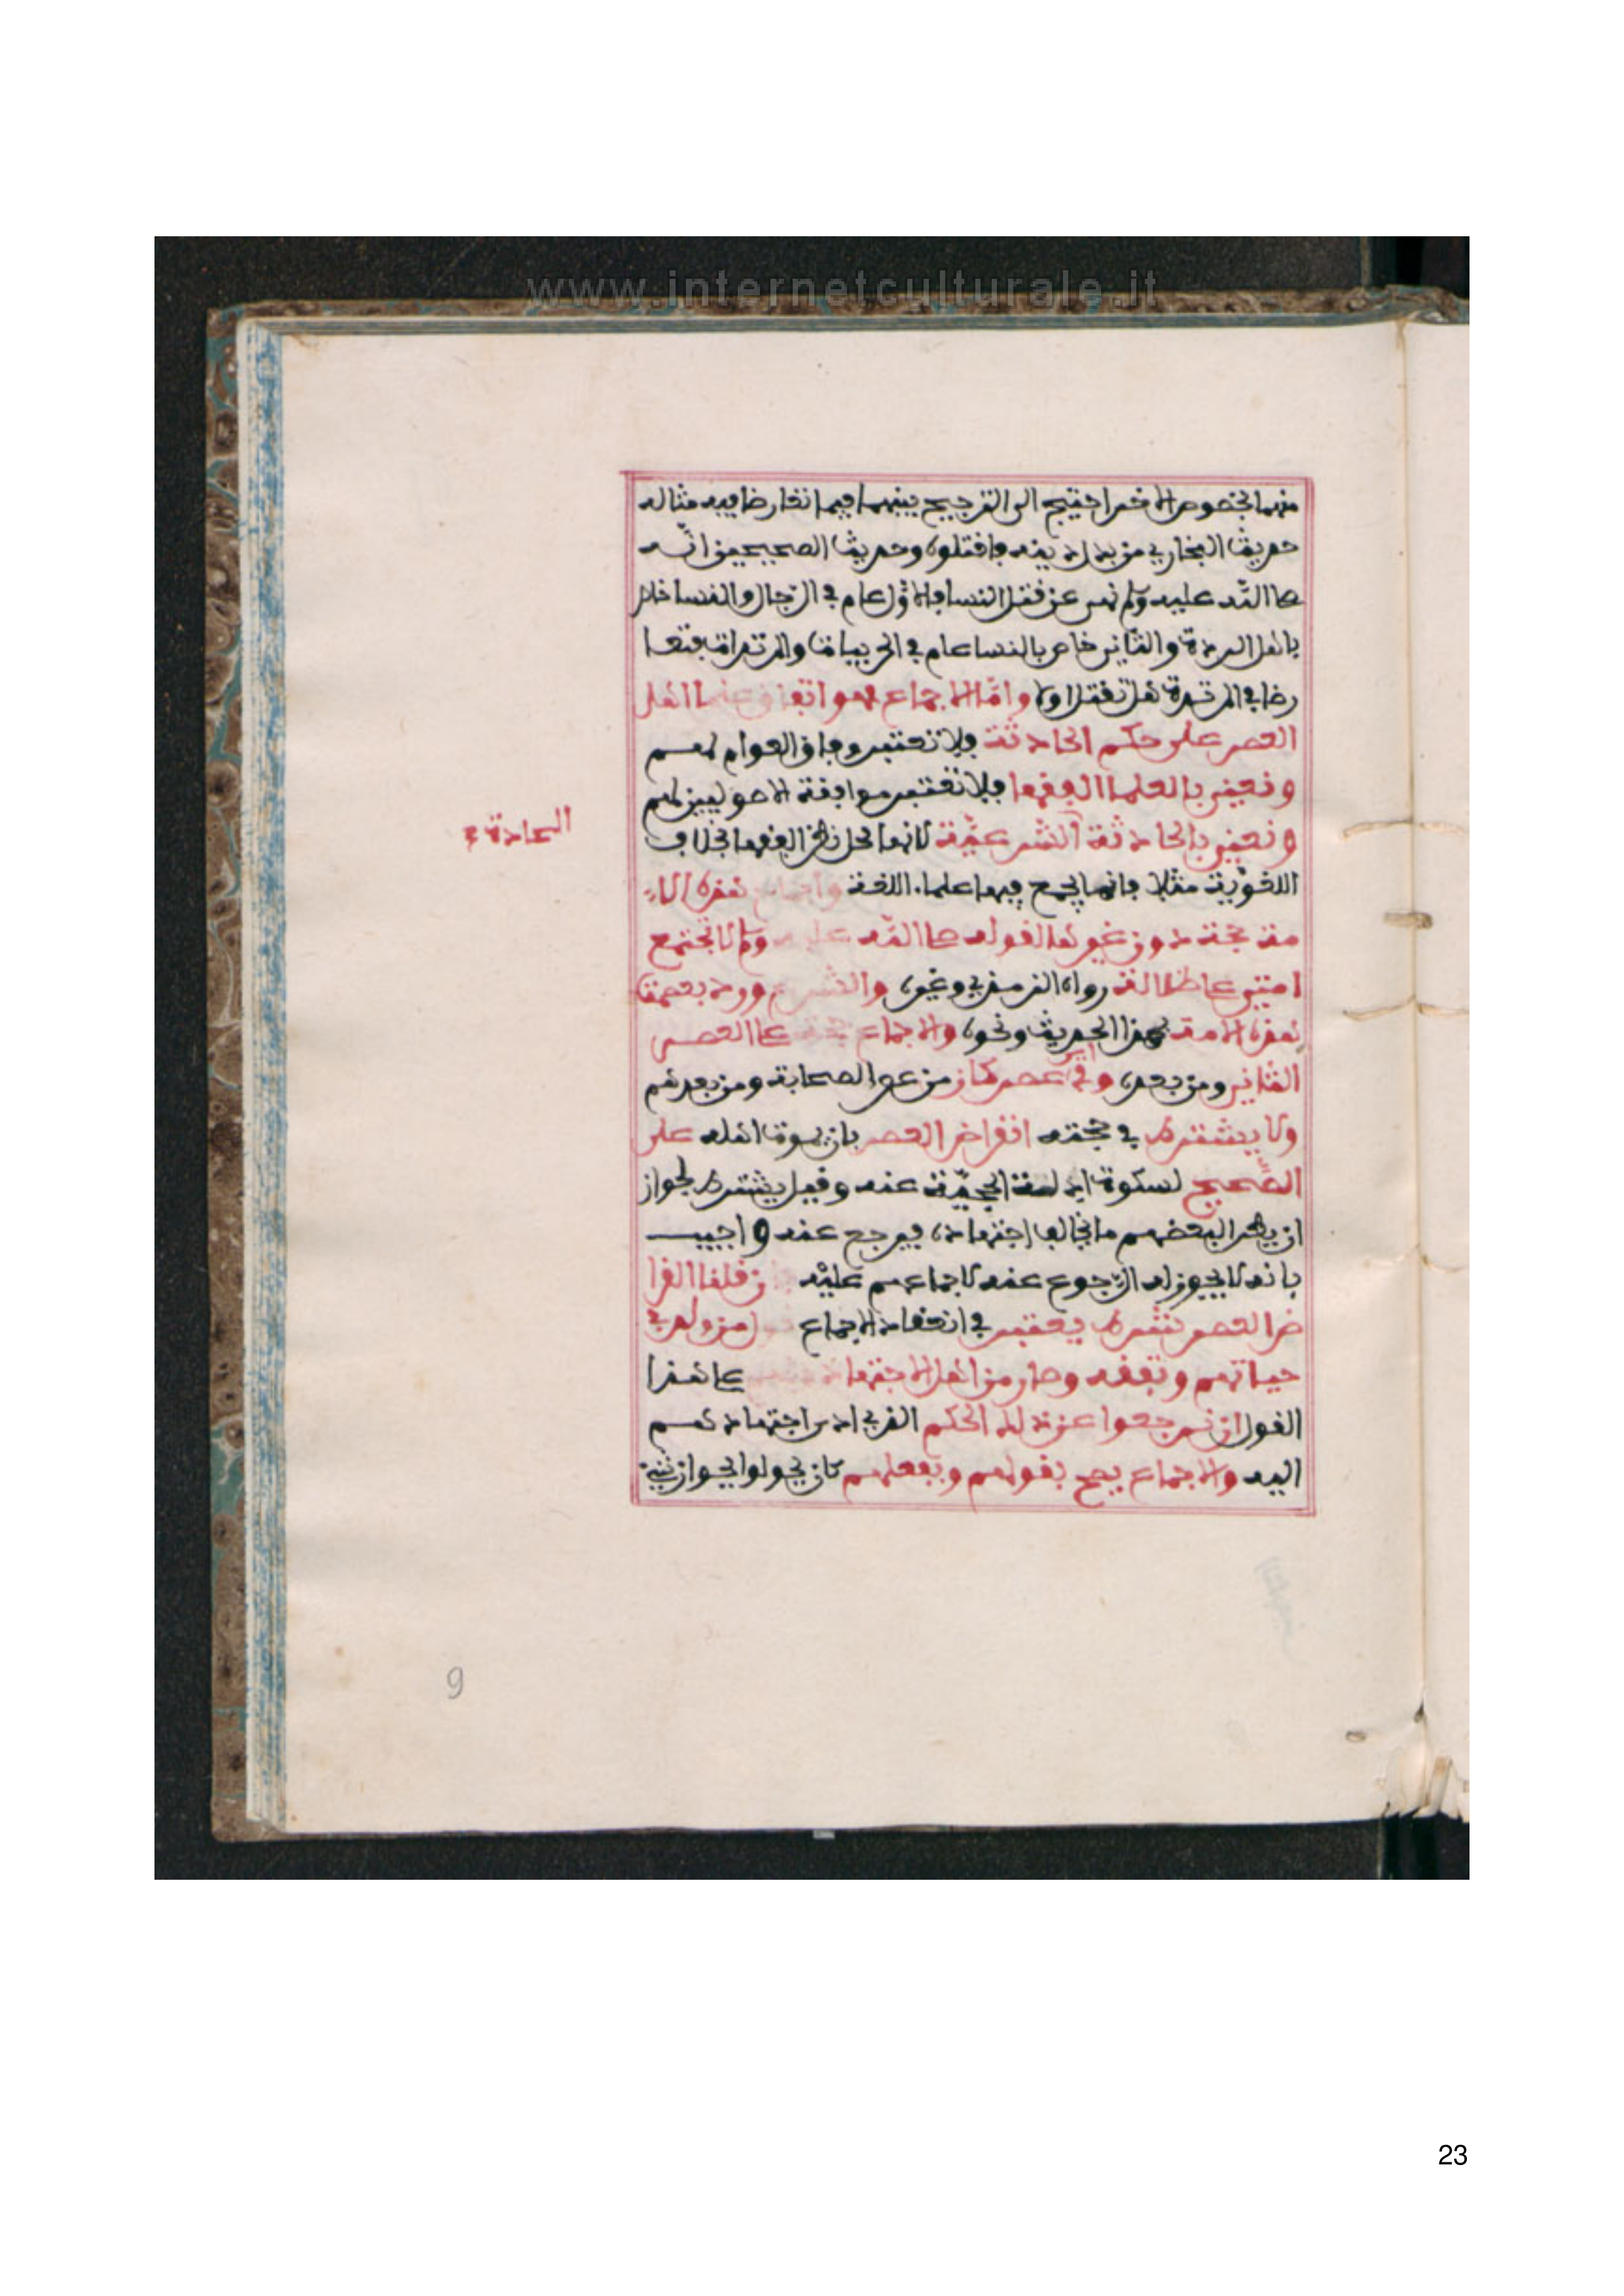 www.internetculturale.it
منهما بخصوص الاخر احتيج الى الترجيح بينهما فيما تعارضا فيه مثاله
حديث البخاري من بدل دينه فاقتلوه وحديث الصحيحين انّه
صلى اللّه عليه وسلم نهى عن قتل النسا فالاوّل عام في الرّجال والنسا خاص
باهل الردة والثّاني خاص بالنسا عام في الحربيات والمرتدات فتعا
رضا في المرتدة هل تقتل او لا وامّا الاجماع فهو اتفاق علماء اهل
العصر على حكم الحادثة فلا تعتبر وفاق العوام لهم
ونعني بالعلما الفقها فلا تعتبر موافقة الاصوليين لهم
ونعني بالحادثة الشرعيّة لانها محل نظر الفقها بخلاف
العادة ع
اللغويّة مثلا فانها يجمع فيها علماء اللغة واجماع هذه الا
مة حجة دون غيرها لقوله صلى اللّه عليه وسلم لا تجتمع
امتي على ضلالة رواه الترمذي وغيره والشرع ورد بعصمة
هذه الامة بهذا الحديث ونحوه والاجماع حجة على العصر
الثّاني ومن بعده وفي اي عصر كان من عصر الصحابة ومن بعدهم
ولا يشترط في حجته انقراض العصر بان يموت اهله على
الصّحيح لسكوت ادلة الحجيّة عنه وقيل يشترط لجواز
ان يطرا لبعضهم ما يخالف اجتهاده فيرجع عنه واجيب
بانه لا يجوز له الرّجوع عنه لاجماعهم عليْه فان قلنا انقرا
ض العصر شرط يعتبر في انعقاد الاجماع قول من ولد في
حياتهم وتفقه وصار من اهل الاجتهاد على هذا
القول ان يرجعوا عن ذلك الحكم الذي ادى اجتهادهم
اليه والاجماع يصح بقولهم وبفعلهم كان يقولوا بجواز شيء
9
23